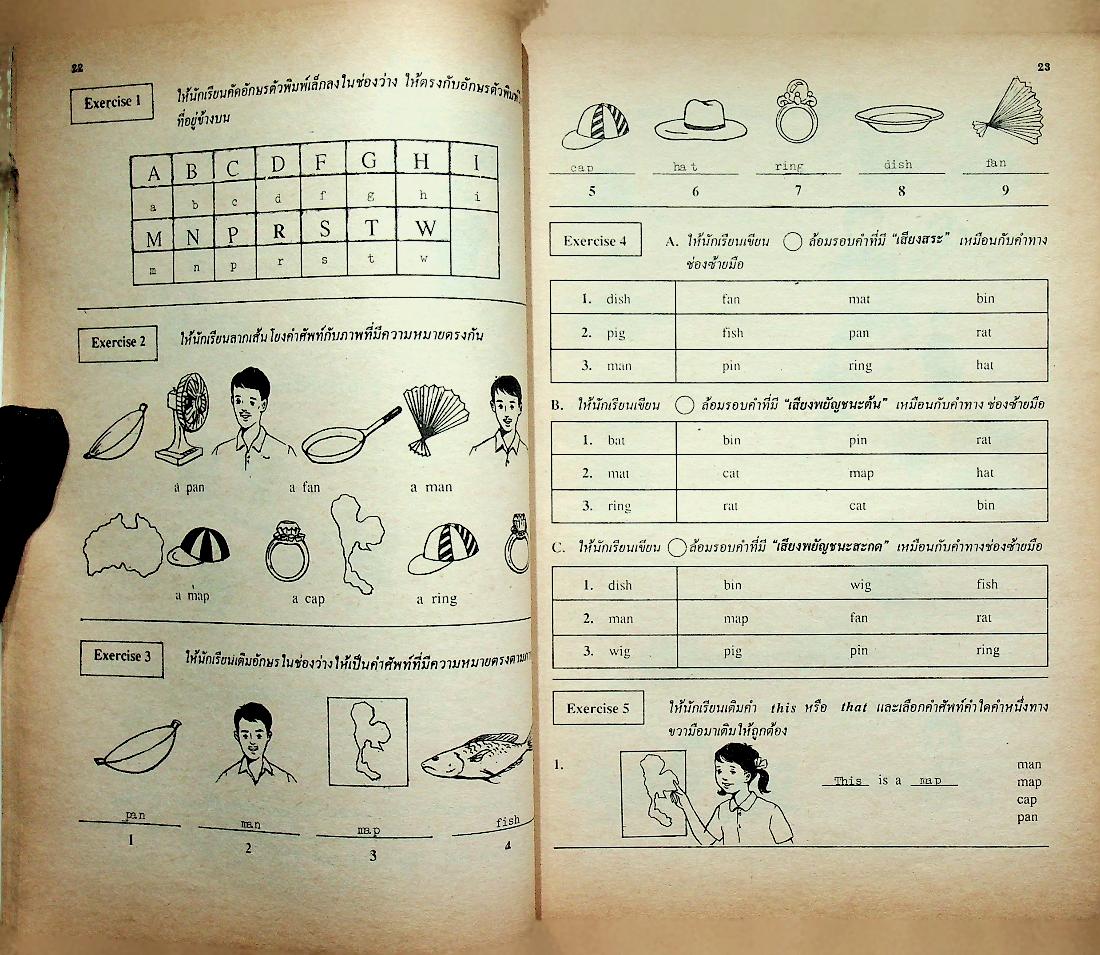 22
Exercise 1
ให้นักเรียนคัดอักษรตัวพิมพ์เล็กลงในช่องว่าง ให้ตรงกับอักษรตัวพิมพ์
ที่อยู่ข้างบน
A B C D F G H I
a b c d f g h i
M N P R S T W
m n p r s t w
Exercise 2
ให้นักเรียนลากเส้นโยงคำศัพท์กับภาพที่มีความหมายตรงกัน
a pan a fan a man
a map a cap a ring
Exercise 3
ให้นักเรียนเติมอักษรในช่องว่างให้เป็นคำศัพท์ที่มีความหมายตรงตาม
pan man map fish
1 2 3 4
23
cap hat ring dish fan
5 6 7 8 9
Exercise 4 A. ให้นักเรียนเขียน ล้อมรอบคำที่มี "เสียงสระ" เหมือนกับคำทาง
ช่องซ้ายมือ
1. dish fan mat bin
2. pig fish pan rat
3. man pin ring hat
B. ให้นักเรียนเขียน ล้อมรอบคำที่มี "เสียงพยัญชนะต้น" เหมือนกับคำทาง ช่องซ้ายมือ
1. bat bin pin rat
2. mat cat map hat
3. ring rat cat bin
C. ให้นักเรียนเขียน ล้อมรอบคำที่มี "เสียงพยัญชนะสะกด" เหมือนกับคำทางช่องซ้ายมือ
1. dish bin wig fish
2. man map fan rat
3. wig pig pin ring
Exercise 5
ให้นักเรียนเติมคำ this หรือ that และเลือกคำศัพท์คำใดคำหนึ่งทาง
ขวามือมาเติมให้ถูกต้อง
1. This is a map
man
map
cap
pan